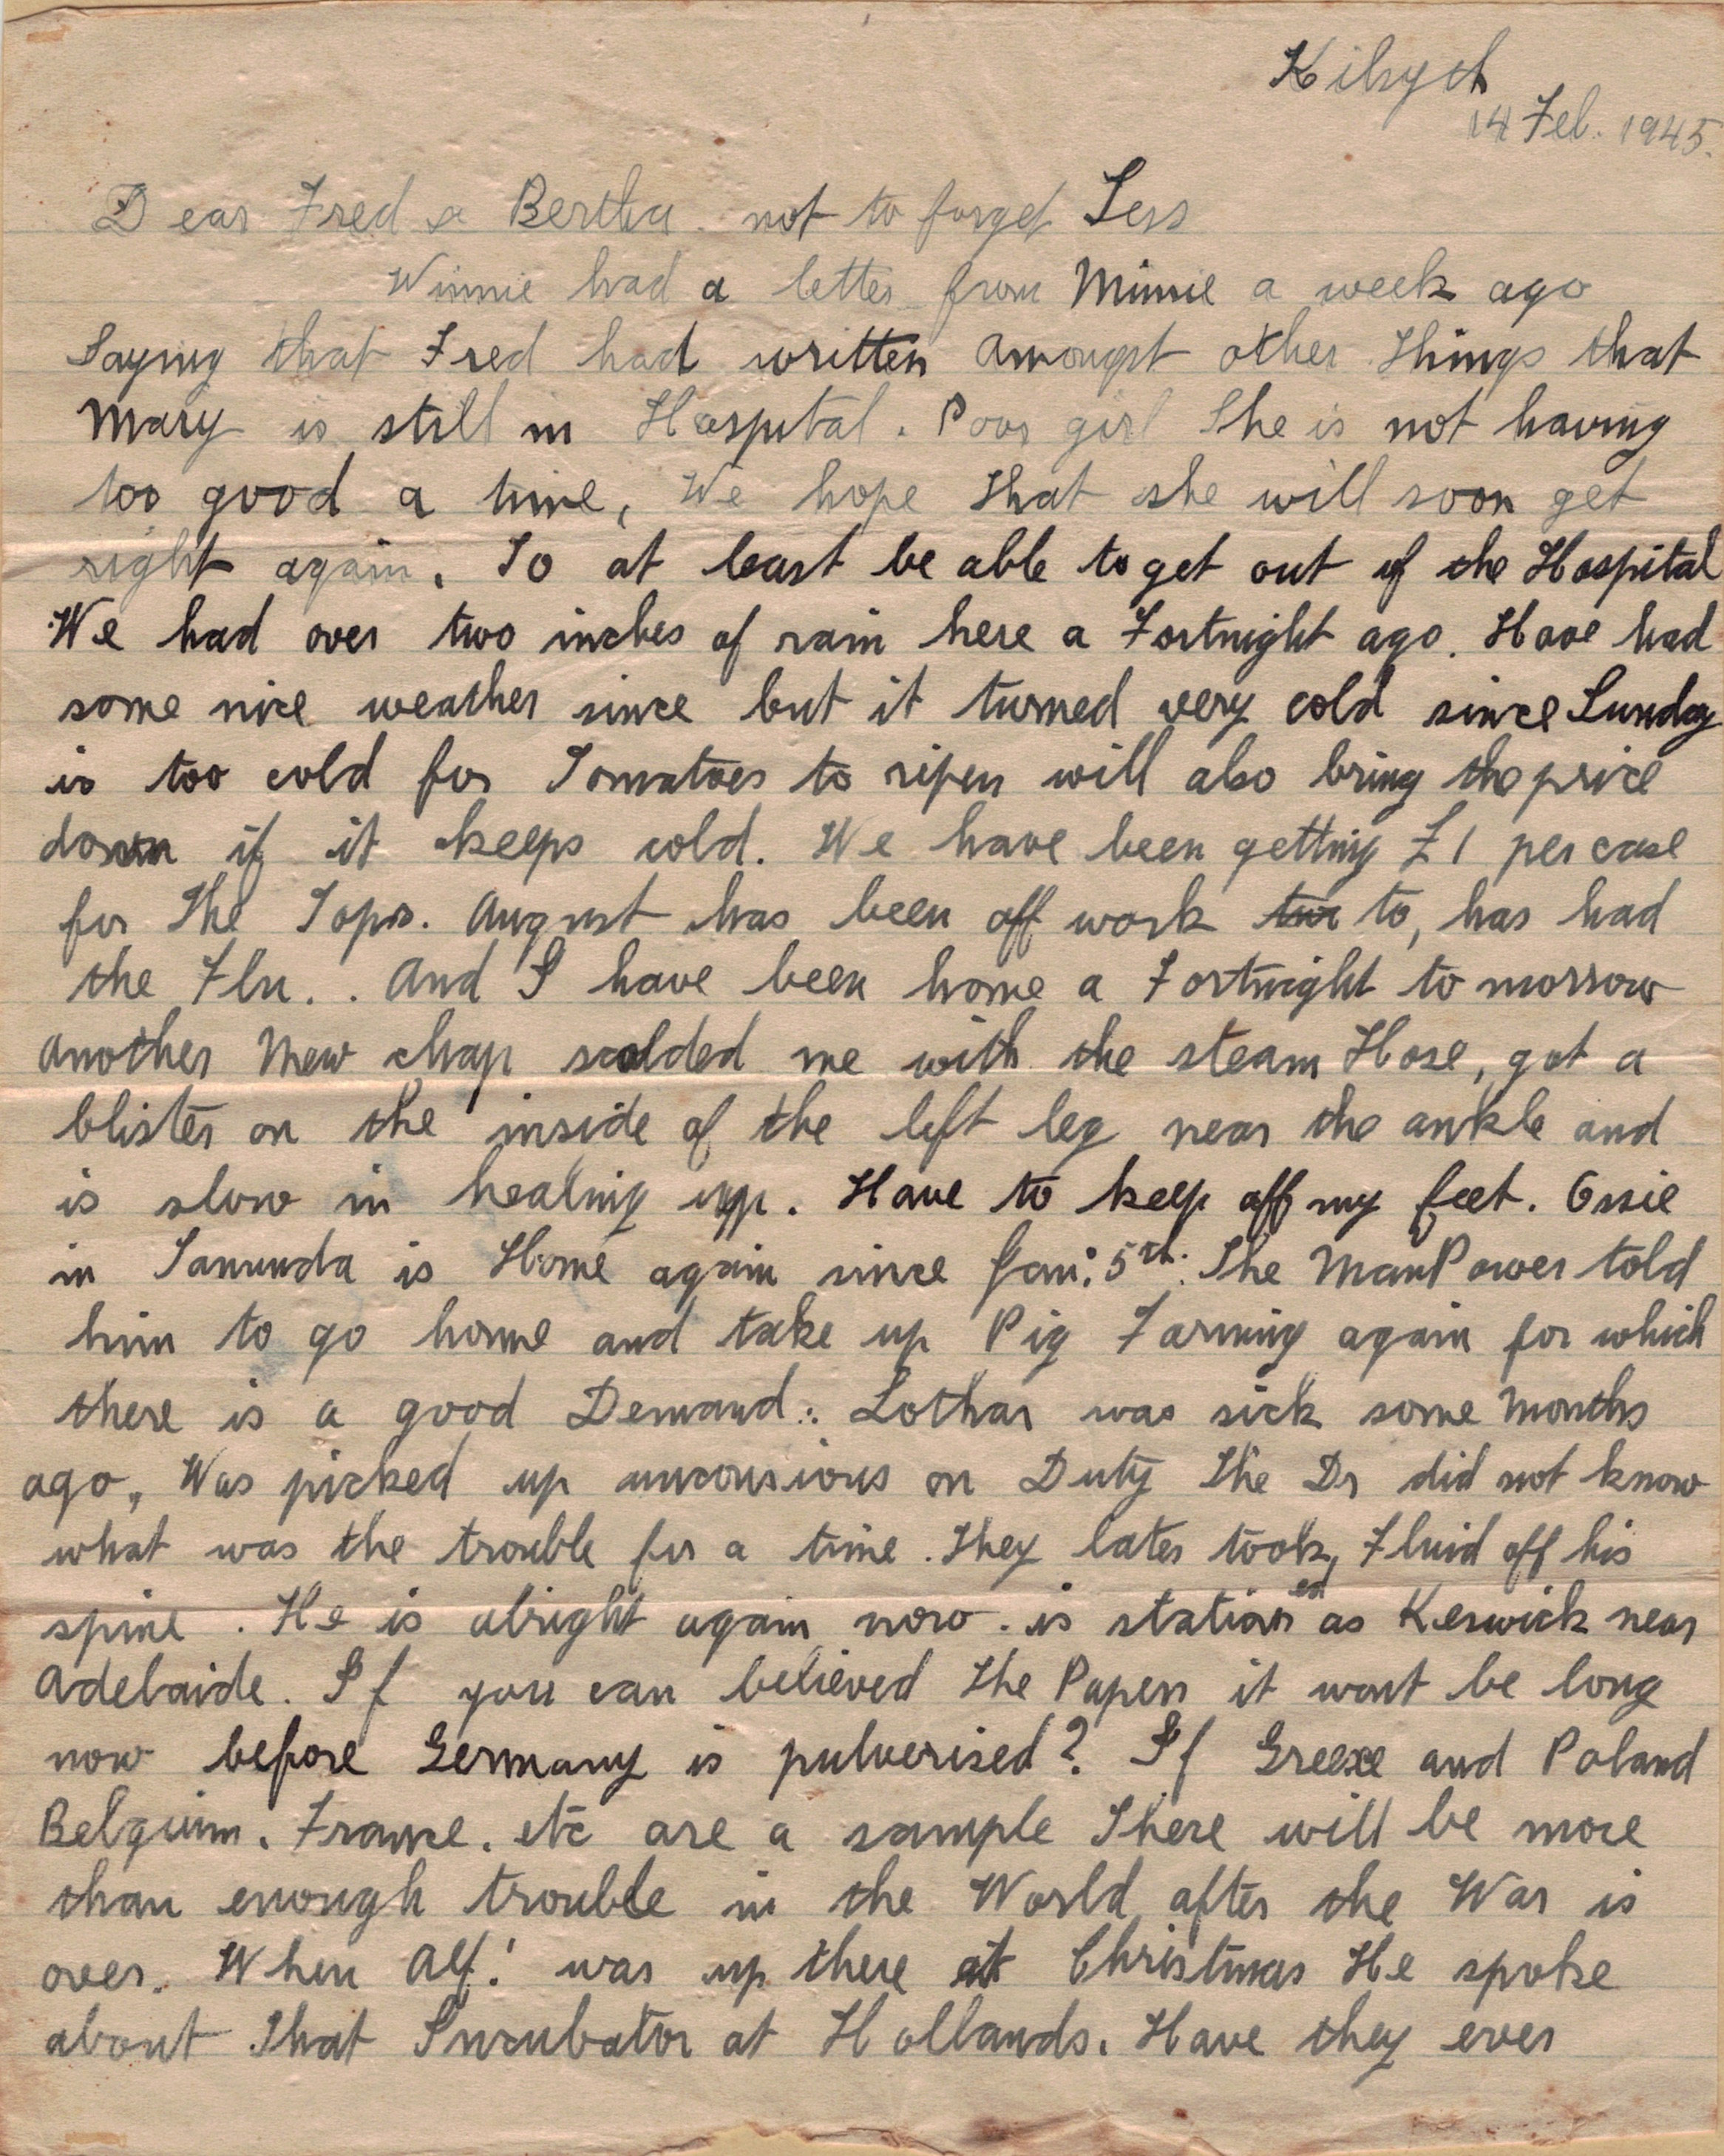 Kilsyth
14 Feb. 1945.
Dear Fred & Bertha not to forget Less
Winnie had a letter from Minnie a week ago
Saying that Fred had written Amongst other things that
Mary is still in Hospital. Poor girl She is not having
too good a time, We hope that she will soon get
right again. To at least be able to get out of the Hospital
We had over two inches of rain here a Fortnight ago. Have had
some nice weather since but it turned very cold since Sunday
is too cold for Tomatoes to ripen will also bring the price
down if it keeps cold. We have been getting £1 per case
for The Tops. August has been off work to, has had
the Flu.. And I have been home a Fortnight to morrow
another New chap scolded me with the steam Hose, got a
blister on the inside of the left leg near the ankle and
is slow in healing up. Have to keep off my feet. Ossie
in Tanunda is Home again since Jan: 5th. The ManPower told
him to go home and take up Pig Farming again for which
there is a good Demand:. Lothar was sick some Months
ago, Was picked up unconsious on Duty The Dr did not know
what was the trouble for a time. They later took, Fluid off his
spine. He is alright again now. is stationed as Keswick near
Adelaide. If you can believed the Papers it wont be long
now before Germany is pulverised? If Greece and Poland
Belguim. France. etc are a sample There will be more
than enough trouble in the World after the War is
over. When Alf! was up there at Christmas He spoke
about That Incubator at Hollands. Have they ever